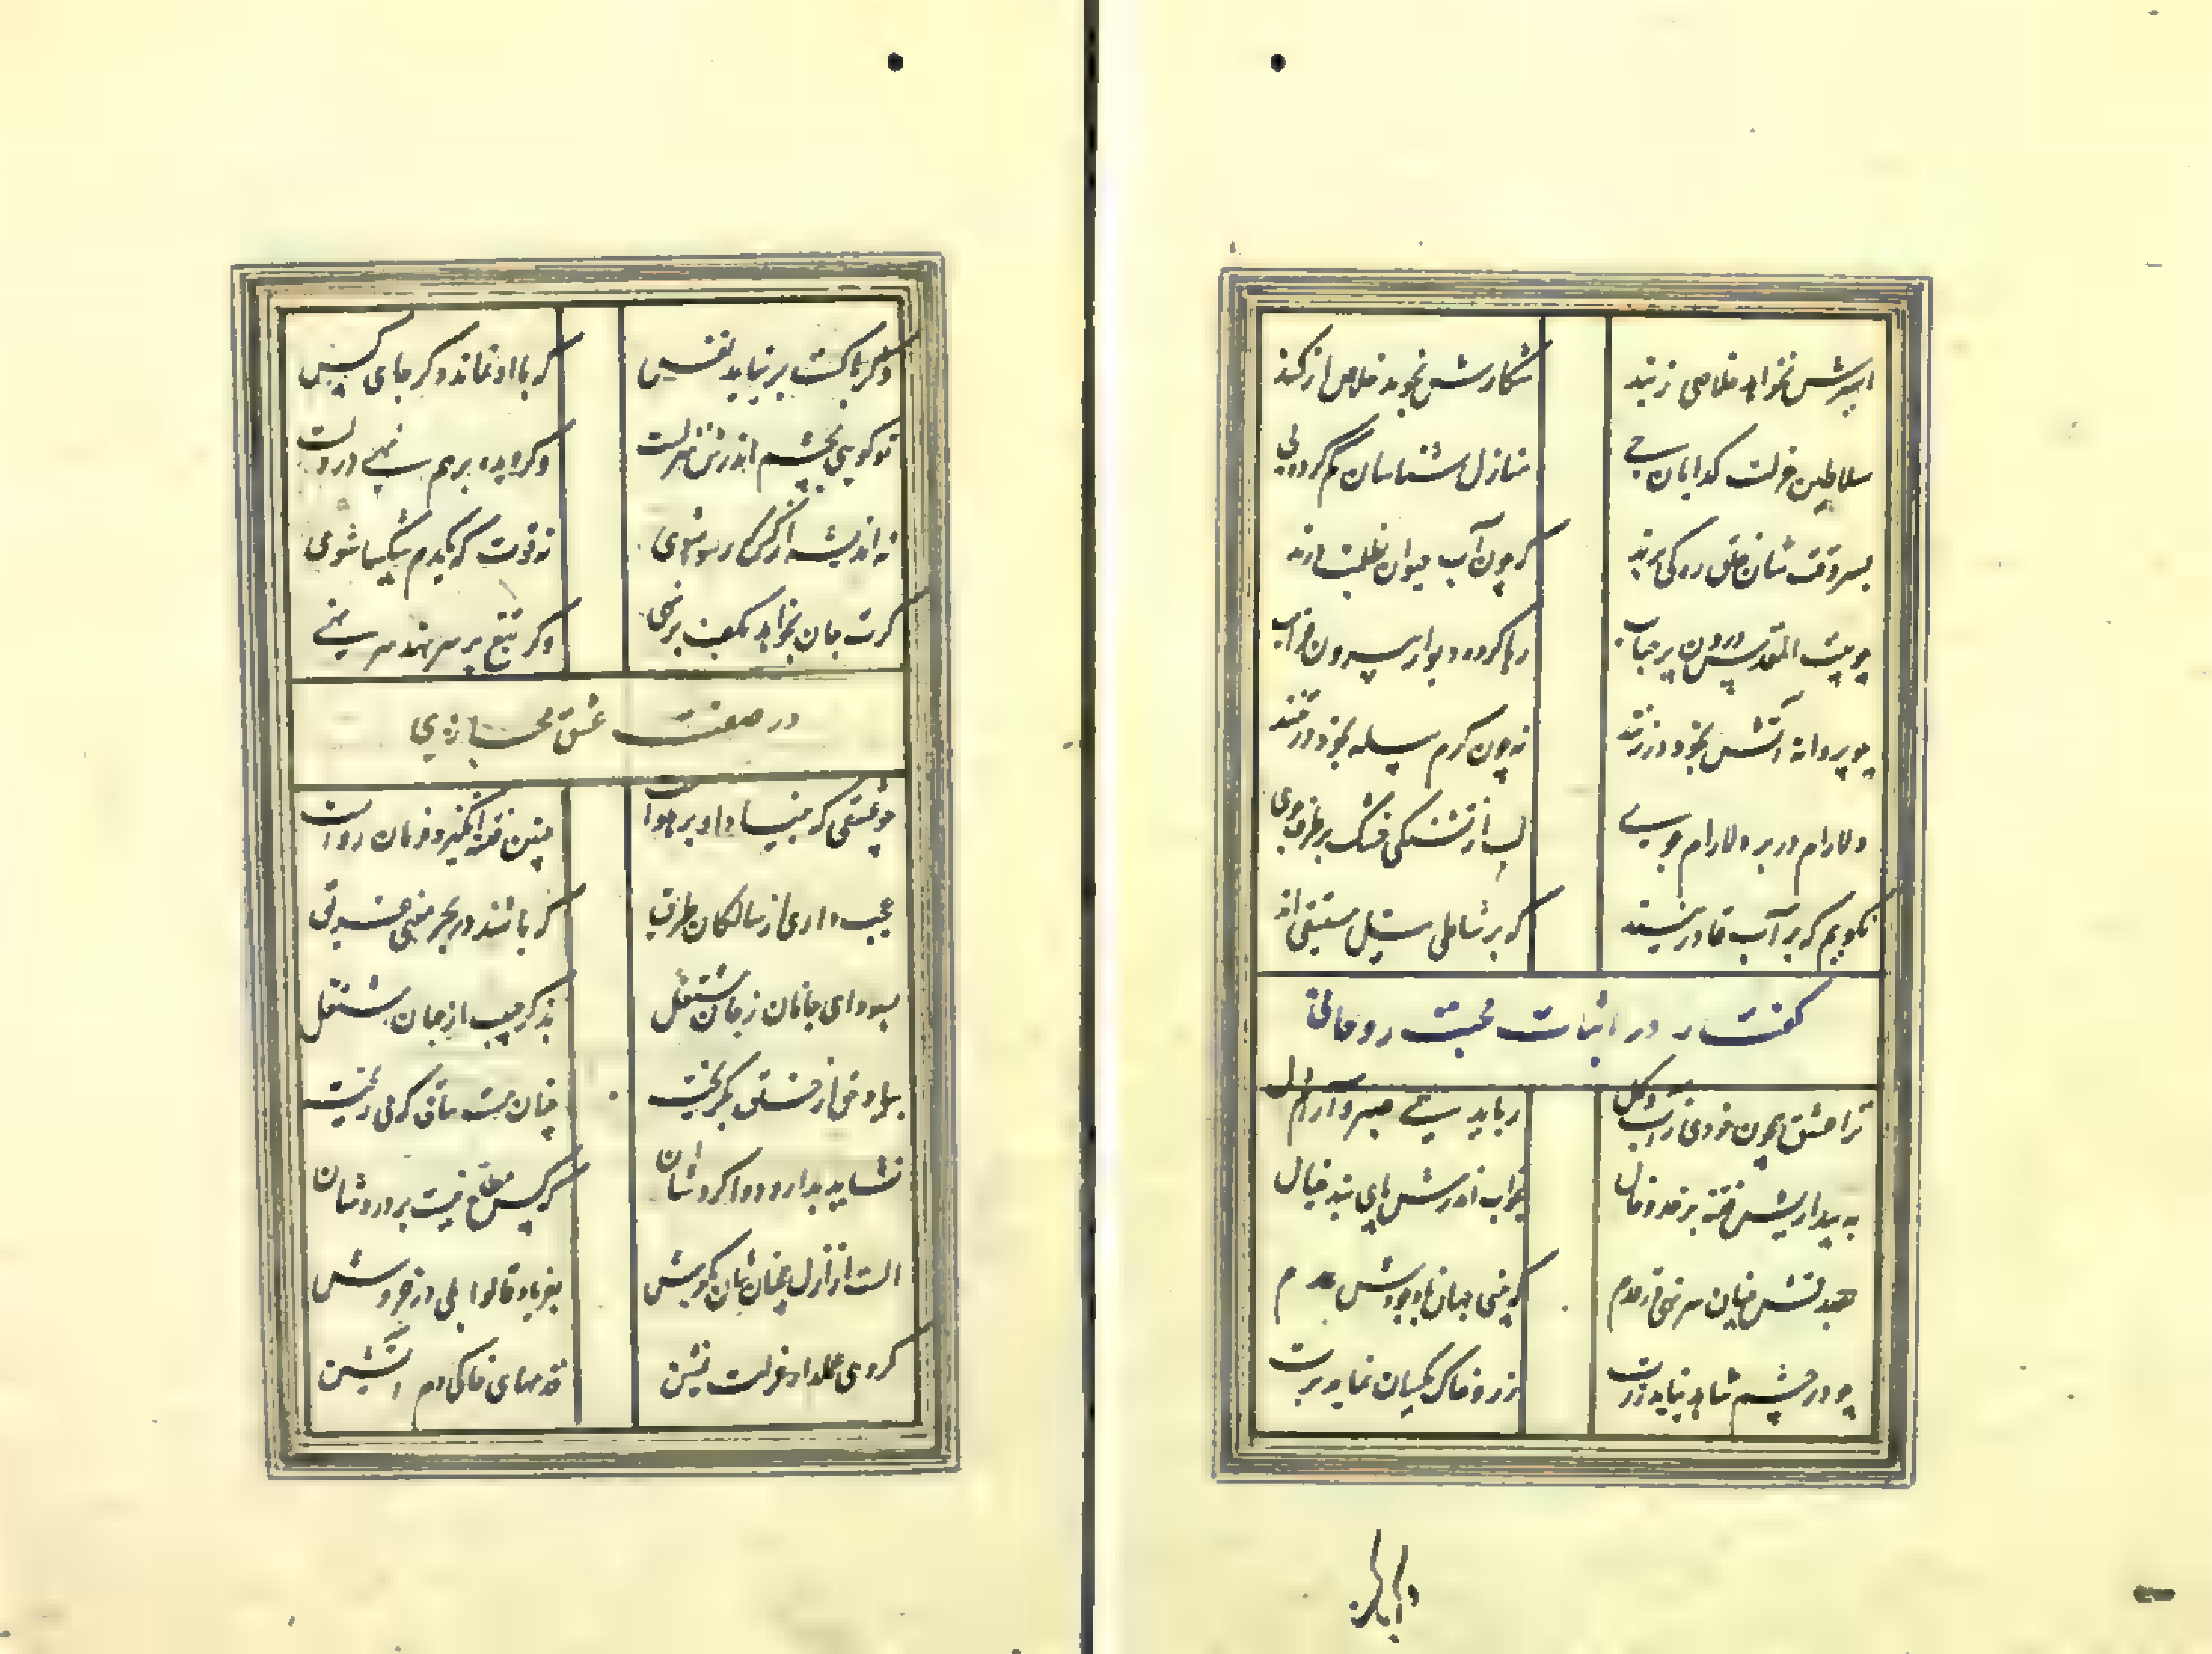 اسیرش نخواهد خلاصی ز بند
شکارش نجوید خلاص از کمند
سلاطین عزلت کدایان حی
منازل شناسان کم کرده پی
بسر وقت شان خلق ره کی برند
که چون آب حیوان بظلمت درند
چو بیت المقدس درون پر حباب
رها کرده دیوار بیرون خراب
چو پروانه آتش بخود در زنند
نه چون کرم پیله بخود در تنند
دلارام در بر دلارام جوی
لب از تشنکی خشک بر طرف جوی
نکویم که بر آب قادر نیند
که بر شاطی نیل مستسقی اند
کفتار در اثبات محبت روحانی
ترا عشق همچون خودی ز آب و کل
رباید همی صبر و آرام دل
به بیداریش فتنه بر خد و خال
بخواب اندرش پای بند خیال
بصدقش چنان سر نهی در قدم
که بینی جهان با وجودش عدم
چو در چشم شاهد نیاید زرت
زر و خاک یکسان نماید برت
دکر با کست
دکر با کست بر نیاید نفس
که با او نماند دکر جای کس
تو کویی بچشم اندرش منزلست
وکر دیده بر هم نهی در دلست
نه اندیشه از کس که رسوا شوی
نه قوت که یکدم شکیبا شوی
کرت جان بخواهد بکف بر نهی
وکر تیغ بر سر نهد سر نهی
در صفت عشق مجازی
چو عشقی که بنیاد او بر هواست
چنین فتنه انکیز و فرمان رواست
عجب داری از سالکان طریق
که باشند در بحر معنی غریق
بسودای جانان ز جان مشتغل
بذکر حبیب از جهان مشتغل
بیاد حق از خلق بکریخته
چنان مست ساقی که می ریخته
نشاید بدارو دوا کردشان
که کس مطلع نیست بر دردشان
الست از ازل همچنانشان بکوش
بفریاد قالوا بلی در خروش
کروهی عملدار عزلت نشین
قدمهای خاکی دم آتشین